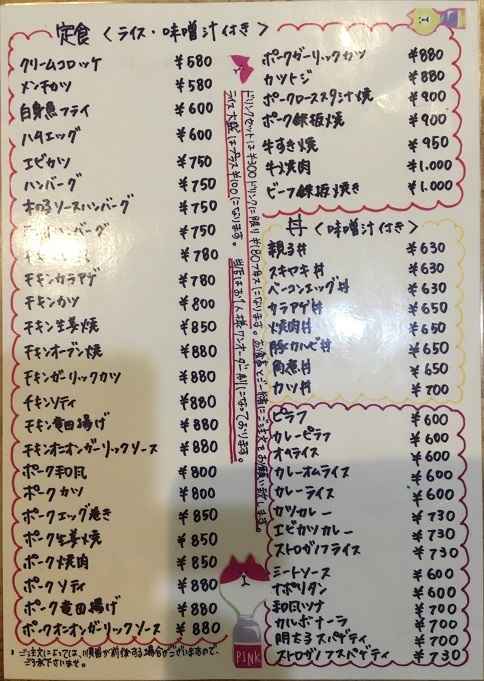 定食〈ライス・味噌汁付き〉
クリームコロッケ ¥580
メンチカツ ¥580
白身魚フライ ¥600
ハムエッグ ¥600
エビカツ ¥750
ハンバーグ ¥750
木の子ソースハンバーグ ¥750
ハンバーグ ¥750
¥780
チキンカラアゲ ¥780
チキンカツ ¥800
チキン生姜焼 ¥850
チキンオーブン焼 ¥880
チキンガーリックカツ ¥880
チキンソティ ¥880
チキン竜田揚げ ¥880
チキンオニオンガーリックソース ¥880
ポーク和風 ¥800
ポークカツ ¥800
ポークエッグ巻き ¥850
ポーク生姜焼 ¥850
ポーク焼肉 ¥850
ポークソティ ¥880
ポーク竜田揚げ ¥880
ポークオニオンガーリックソース ¥880
ご注文によっては、順番が前後する場合がございますので、
ご了承下さいませ。
ドリンクセットは¥300ドリンクに限り¥180プラスになります。お食事と一緒にご注文をお願い致します。
ライス大盛はプラス¥100になります。当店はお1人様ワンオーダー制になっております。
ポークガーリックカツ ¥880
カツトジ ¥880
ポークローススタジオ焼 ¥900
ポーク鉄板焼 ¥900
牛すき焼 ¥950
牛焼肉 ¥1.000
ビーフ鉄板焼き ¥1.000
丼〈味噌汁付き〉
親子丼 ¥630
スキヤキ丼 ¥630
ベーコンエッグ丼 ¥630
カラアゲ丼 ¥650
焼肉丼 ¥650
豚カルビ丼 ¥650
角煮丼 ¥650
カツ丼 ¥700
ピラフ ¥600
カレーピラフ ¥600
オムライス ¥600
カレーオムライス ¥600
カレーライス ¥600
カツカレー ¥730
エビカツカレー ¥730
ストロガノフライス ¥730
ミートソース ¥600
ナポリタン ¥600
和風ツナ ¥700
カルボナーラ ¥700
明太子スパゲティ ¥700
ストロガノフスパゲティ ¥730
PINK